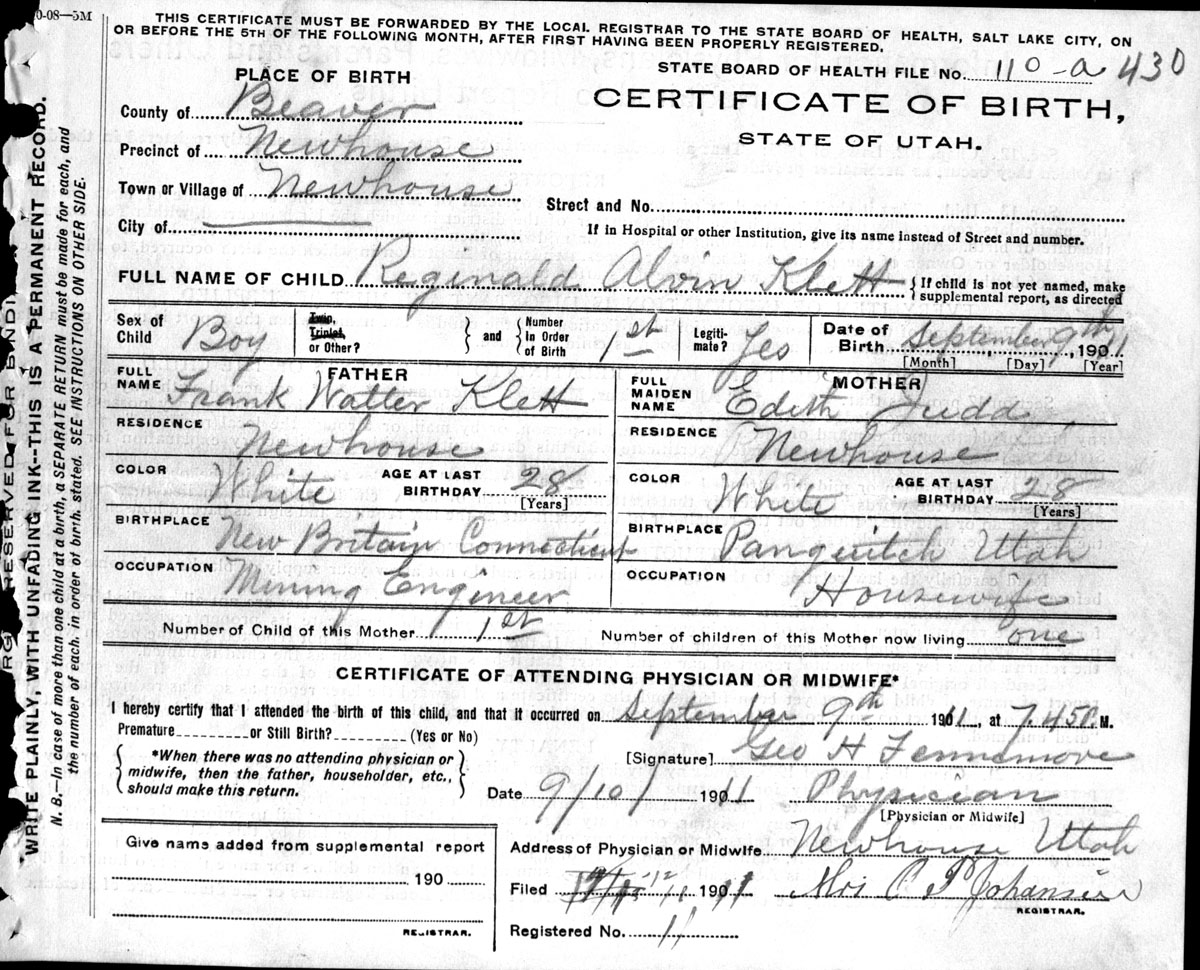 0-08—5M
THIS CERTIFICATE MUST BE FORWARDED BY THE LOCAL REGISTRAR TO THE STATE BOARD OF HEALTH, SALT LAKE CITY, ON
OR BEFORE THE 5TH OF THE FOLLOWING MONTH, AFTER FIRST HAVING BEEN PROPERLY REGISTERED.
STATE BOARD OF HEALTH FILE NO. 110-a 430
PLACE OF BIRTH
CERTIFICATE OF BIRTH,
STATE OF UTAH.
County of Beaver
Precinct of Newhouse
Town or Village of Newhouse
Street and No.
City of
If in Hospital or other Institution, give its name instead of Street and number.
FULL NAME OF CHILD Reginald Alvin Klett { If child is not yet named, make
supplemental report, as directed
Sex of Child Boy Twin, Triplet, or Other? } and { Number in Order of Birth 1st Legitimate? Yes Date of Birth September 9th, 1911
[Month] [Day] [Year]
FATHER
FULL NAME Frank Walter Klett
RESIDENCE Newhouse
COLOR White AGE AT LAST BIRTHDAY 28
[Years]
BIRTHPLACE New Britain Connecticut
OCCUPATION Mining Engineer
MOTHER
FULL MAIDEN NAME Edith Judd
RESIDENCE Newhouse
COLOR White AGE AT LAST BIRTHDAY 28
[Years]
BIRTHPLACE Panguitch Utah
OCCUPATION Housewife
Number of Child of this Mother 1st Number of children of this Mother now living one
CERTIFICATE OF ATTENDING PHYSICIAN OR MIDWIFE*
I hereby certify that I attended the birth of this child, and that it occurred on September 9th 1911, at 7.45 P M.
Premature or Still Birth? (Yes or No)
[Signature] Geo H Fennemore
{ *When there was no attending physician or
midwife, then the father, householder, etc.,
should make this return. }
Date 9/10/ 1911 Physician
[Physician or Midwife]
Address of Physician or Midwife Newhouse Utah
Filed 1911 Mrs C P Johansen
REGISTRAR.
Registered No. 11
Give name added from supplemental report
190
REGISTRAR.
RESERVED FOR BINDI
*WRITE PLAINLY, WITH UNFADING INK--THIS IS A PERMANENT RECORD.
N. B.—In case of more than one child at a birth, a SEPARATE RETURN must be made for each, and
the number of each, in order of birth, stated. SEE INSTRUCTIONS ON OTHER SIDE.